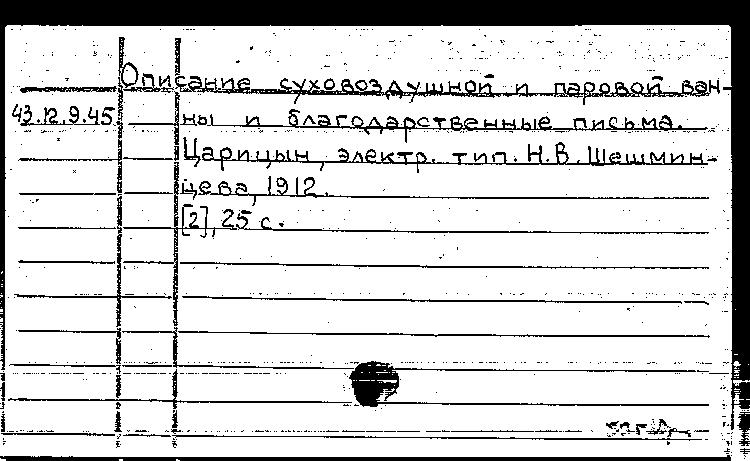 Описание суховоздушной и паровой ван-
43.12.9.45. ны и благодарственные письма.
Царицын, электр. тип. Н.В. Шешмин-
цева, 1912.
[2], 25 с.